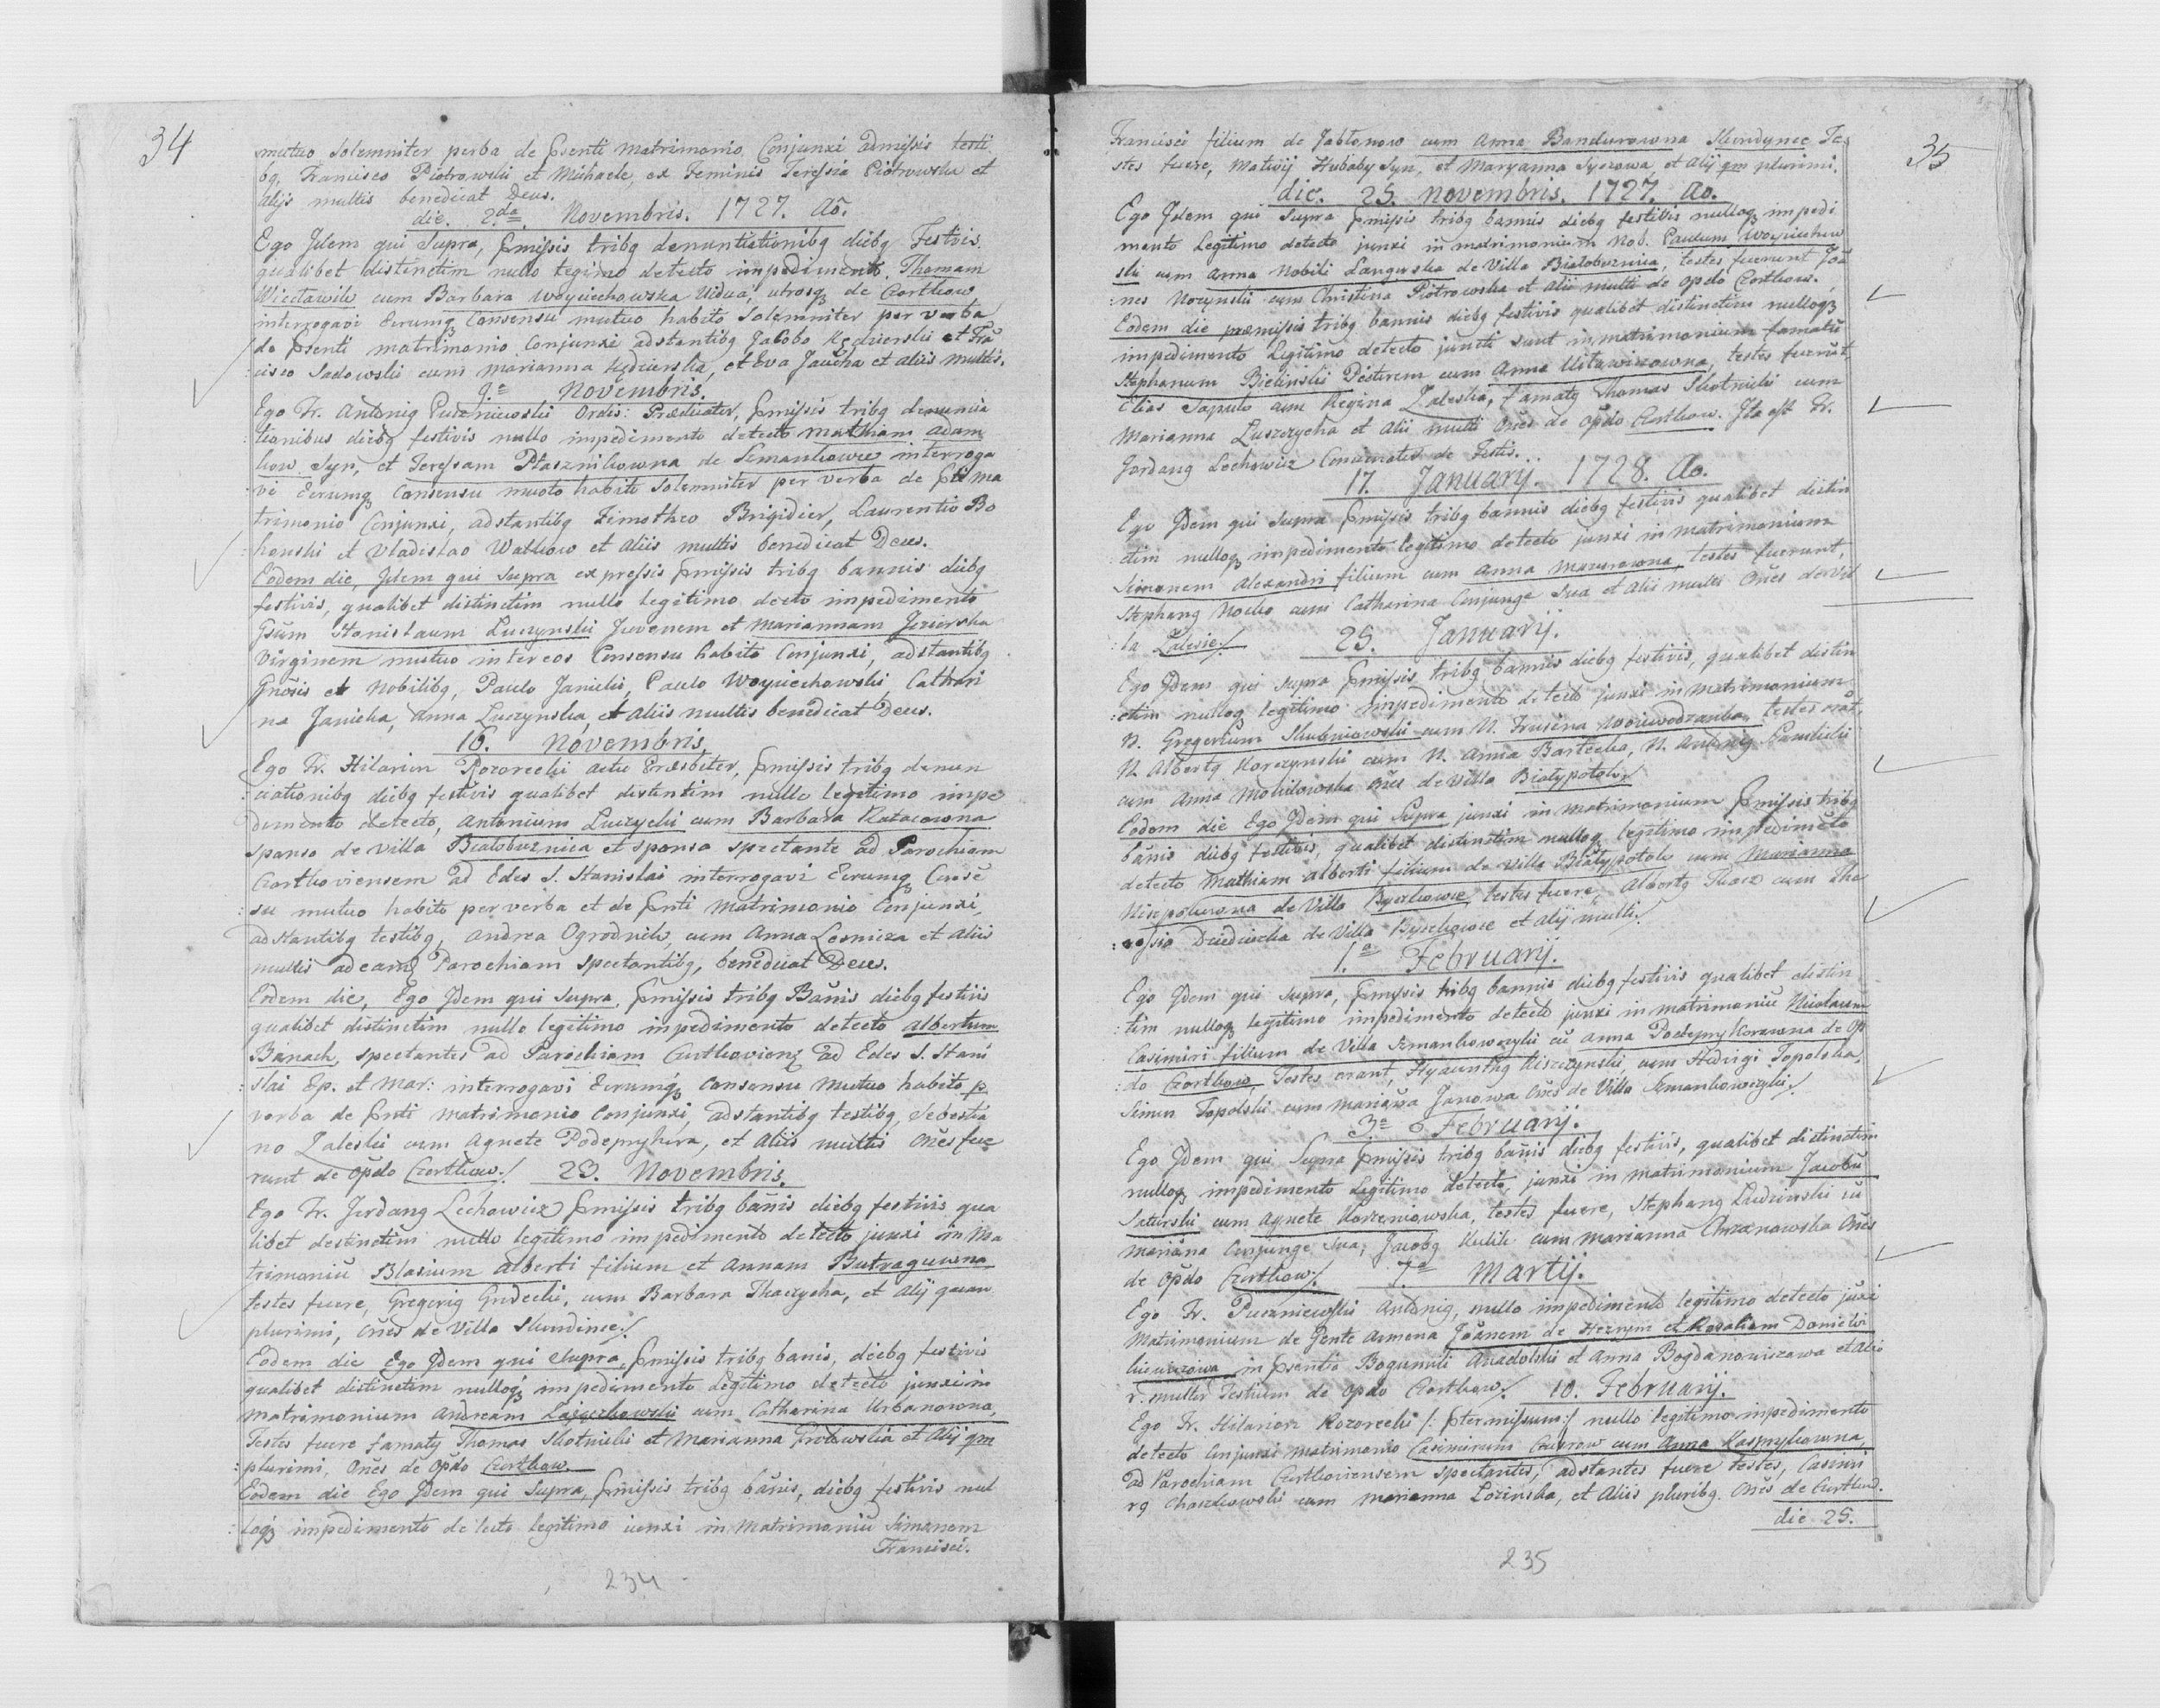 34
mutuo solemniter perba de psenti matrimonio Conjunxi admissis testi
bq, Francisco Piotrowski et Michaele, ex Feminis Teressia Piotrowska et
Alijs multis benedicat Deus.
die. 2da. Novembris. 1727. Aõ.
Ego Idem qui Supra, pmissis tribq denuntiationibq diebq Festvis
qualibet distinctim nullo legimo detecto impedimento, Thomam
Wiectawik cum Barbara Woyciechowska Vidua, utrosq de Czortkow
interrogavi Eorumq Consensu mutuo habito Solemniter per verba
de psenti matrimonio Conjunxi adstantibq Jacobo Kędzierski et Frã
cisco Sadowski cum Marianna Kędzierska, et Eva Jaucha et aliis multis.
9a Novembris.
Ego Fr. Antonig Puczniewski Ordis: Prædicator, pmissis tribq denuncia
tionibus diebq festivis nullo impedimento detecto Mathiam Adam
kow Syn, et Teressam Ptasznikowna de Semankowce interroga
vi Eorumq Consensu muoto habito solemniter per verba de pti ma
trimonio Conjunxi, adstantibq Timotheo Brigidier, Laurentio Bo
henski et Vladislao Walkow et Aliis multis benedicat Deus.
Eodem die, Idem qui Supra expressis pmissis tribq bannis diebq
festivis, qualibet distinctim nullo legitimo decto impedimento
Gsum Stanislaum Luczynski Juvenem et Mariannam Jezierska
Virginem mutuo inter eos Consensu habito Conjunxi, adstantibq
Gnosis et Nobilibq, Paulo Janicki, Paulo Woyciechowski, Cathari
na Janicka, Anna Luczynska et Aliis multis benedicat Deus.
16. Novembris.
Ego Fr. Hilarion Rozorecki actu Præsbiter, pmissis tribq denun
ciationibq diebq festivis qualibet distintim nullo legitimo impe
dimento detecto, Antonium Luczycki cum Barbara Katacowna
sponso de Villa Bialoboznica et sponsa spectante ad Parochiam
Czortkoviensem ad Edes S. Stanislai interrogavi Eorumq Cõsẽ
su mutuo habito per verba et de pnti Matrimonio Conjunxi,
adstantibq testibq, Andrea Ogrodnik, cum Anna Lesnicza et Aliis
multis ad eamq Parochiam spectantibq, benedicat Deus.
Eodem die, Ego Idem qui Supra, pmissis tribq Bãnis diebq festiis
qualibet distinctim nullo legitimo impedimento detecto Albertum
Banach, spectantes ad Parochiam Czortkovienq ad Edes S. Stani
slai Ep. et Mar: interrogavi Eorumq Consensu Mutuo habito p
verba de pnti matrimonio Conjunxi, adstantibq testibq, Sebestia
no Zaleski cum Agnete Podepryhora, et Aliis multis Oñes fue
runt de Opdo Czortkow./. 23. Novembris.
Ego Fr. Jordanq Lechowicz pmissis tribq bãnis diebq festivis qua
libet destinctim nullo legitimo impedimento detecto junxi in Ma
trimoniũ Blasium Alberti filium et Annam Butraguwna
testes fuere, Gregorig Gudecki, cum Barbara Tkaczycha, et Alij quam
plurimi, Oñes de Villa Skurdince./.
Eodem die Ego Idem qui Supra, pmissis tribq banis, diebq festivis
qualibet distinctim nulloq impedimento legitimo detecto junxi in
Matrimonium Andream Lajszchowski cum Catharina Urbanowna,
Testes fuere famatq Thomas Skotnicki et Marianna Grotowska et Alij qm
plurimi, Oñes de Opdo Czortkow.
Eodem die Ego Idem qui Supra, pmissis tribq bãnis, diebq festivis nul
loq impedimento detecto legitimo iunxi in Matrimoniũ Simonem
Francisci.
234
35
Francisci filium de Jabłonow cum Anna Bandurowna Skurdynec Te
stes fuere, Matwij Hubaby Syn, et Maryanna Sysowa, et Alij qm plurimi.
die. 25. Novembris. 1727. Ao.
Ego Idem qui Supra pmissis tribq bannis diebq festivis nulloq impedi
mento Legitimo detecto junxi in matrimonium Nob. Paulum Woyciechow
ski cum Anna Nobili Langurska de Villa Bialoboznica, testes fuerunt Joa
nes Noczynski cum Christina Piotrowska et Alii multi de opdo Czortkow.
Eodem die præmissis tribq bannis diebq festivis qualibet distinctim nulloq
impedimento Legitimo detecto juncti sunt in matrimonium famatũ
Stephanum Bielinski Dextirem cum Anna Witawicowna, testes fuerũt
Elias Saputo cum Regina Zaleska, Famatq Thomas Skotnicki cum
Marianna Luszczycha et Alii multi Oñes de Opdo Czortkow. Ita est Fr.
Jordanq Lechowicz Concionator de Festis.
17. Januarij. 1728. Ao.
Ego Idem qui Supra pmissis tribq bannis diebq festivis qualibet distin
ctim nulloq impedimento legitimo detecto junxi in matrimonium
Simonem Alexandri filium cum Anna Mazurowna, testes fuerunt,
Stephanq Nocko cum Catharina Conjunge Sua et Alii multi Oñes de Vil
la Zalesie./. 25. Januarij.
Ego Idem qui Supra pmissis tribq bannis diebq festivis, qualibet distin
ctim nulloq legitimo impedimento detecto junxi in matrimonium
N. Gregorium Skubniowski cum N. Frusina Woiewodzanka, testes erãt,
N. Albertq Korczynski cum N. Anna Bartecka, N. Antonig Pawlicki
cum Anna Mohilowska Oñes de Villa Bialypotok./.
Eodem die Ego Idem qui Supra junxi in matrimonium pmissis tribq
bãnis diebq festivis, qualibet distinctim nulloq legitimo impedimẽto
detecto Mathiam Alberti filium de Villa Bialypotok cum Marianna
Nicpoluwna de Villa Byczkowce, testes fuere, Albertq Tkacz cum The
ressia Dziedzicka de Villa Byczkowce et Alij multi./.
1.a Februarij.
Ego Idem qui Supra, pmissis tribq bannis diebq festivis qualibet distin
tim nulloq legitimo impedimento detecto junxi in matrimoniũ Nicolaum
Casimiri filium de Villa Szmankowczyki cũ Anna Podepryhorowna de Op
do Czortkow, Testes erant, Hyacinthq Kiszczynski, cum Hedvigi Topolska,
Simon Topolski cum Mariãna Janowa Oñes de Villa Szmankowczyki./.
3a Februarij.
Ego Idem qui Supra pmissis tribq bãnis diebq festivis, qualibet distinctim
nulloq impedimento Legitimo detecto, junxi in matrimonium Jacobũ
Saturski cum Agnete Korzeniowska, testes fuere, Stephanq Ludzinski cũ
Mariana Conjunge Sua, Jacobq Kulik cum Marianna Chrzanowska Oñes
de Opdo Czortkow./. 7a Martij.
Ego Fr. Puczniewski Antonig, nullo impedimento legitimo detecto jũxi
Matrimonium de Gente Armena Joãnem de Heznym et Rosaliam Danielo
kiewiczowa in psentia Bogumili Anadolski et Anna Bogdanowiczowa et Alio
r. multor Testium de Opdo Czortkow./. 10. Februarij.
Ego Fr. Hilarion Rozorecki /: ptermissum :/ nullo legitimo impedimento
detecto Conjunxi Matrimonio Casimirum Czurow cum Anna Kasprykowna,
ad Parochiam Czortkoviensem spectantes, adstantes fuere testes, Casimi
rq Chaszkowski cum Marianna Lozinska, et Aliis pluribq. Oñes de Czortkow.
die 25.
235